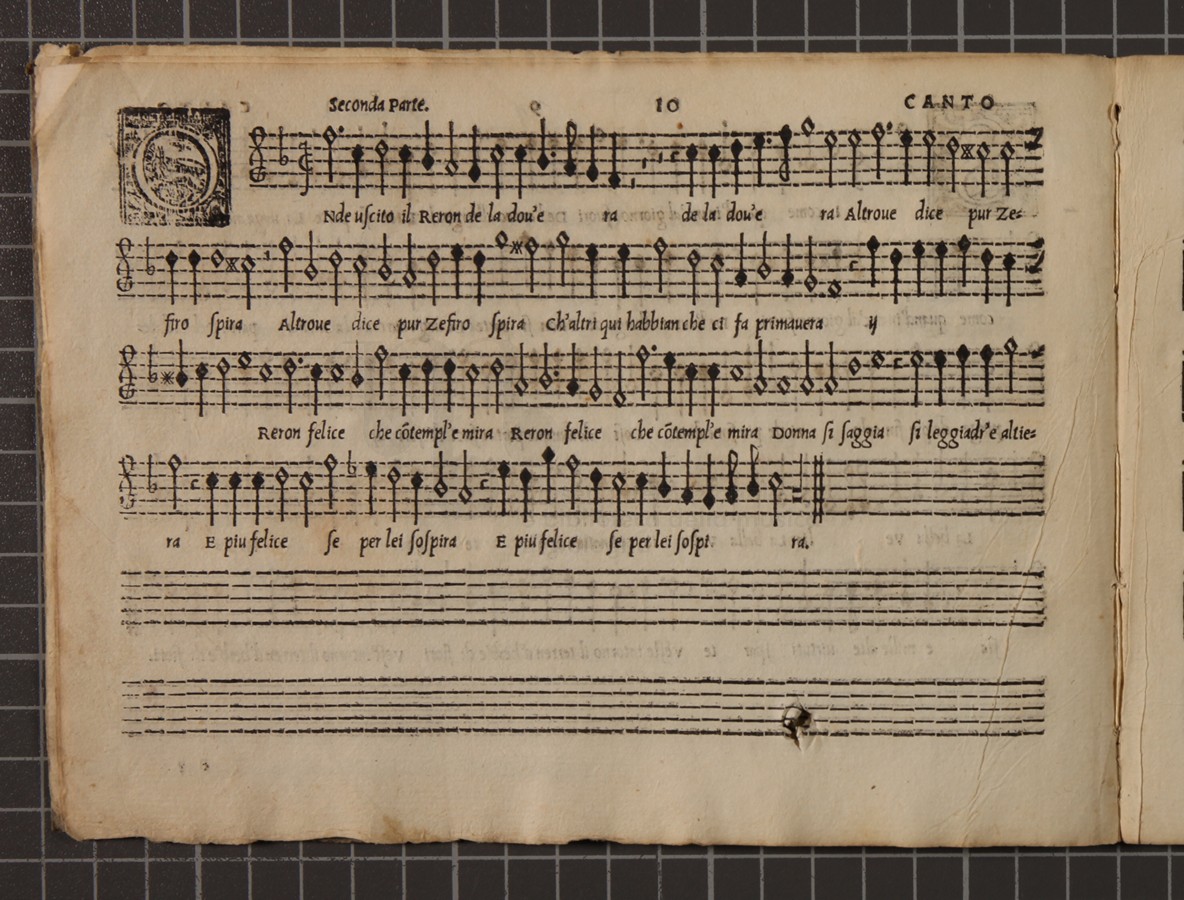 Seconda Parte. 10 CANTO
O
Nde uſcito il Reron de la dou'e ra de la dou'e ra Altroue dice pur Ze=
firo ſpira Altroue dice pur Zefiro ſpira Ch'altri qui habbian che ci fa primauera ij
Reron felice che cõtempl'e mira Reron felice che cõtempl'e mira Donna ſi ſaggia ſi leggiadr'e altie=
ra E piu felice ſe per lei ſoſpira E piu felice ſe per lei ſoſpi ra.